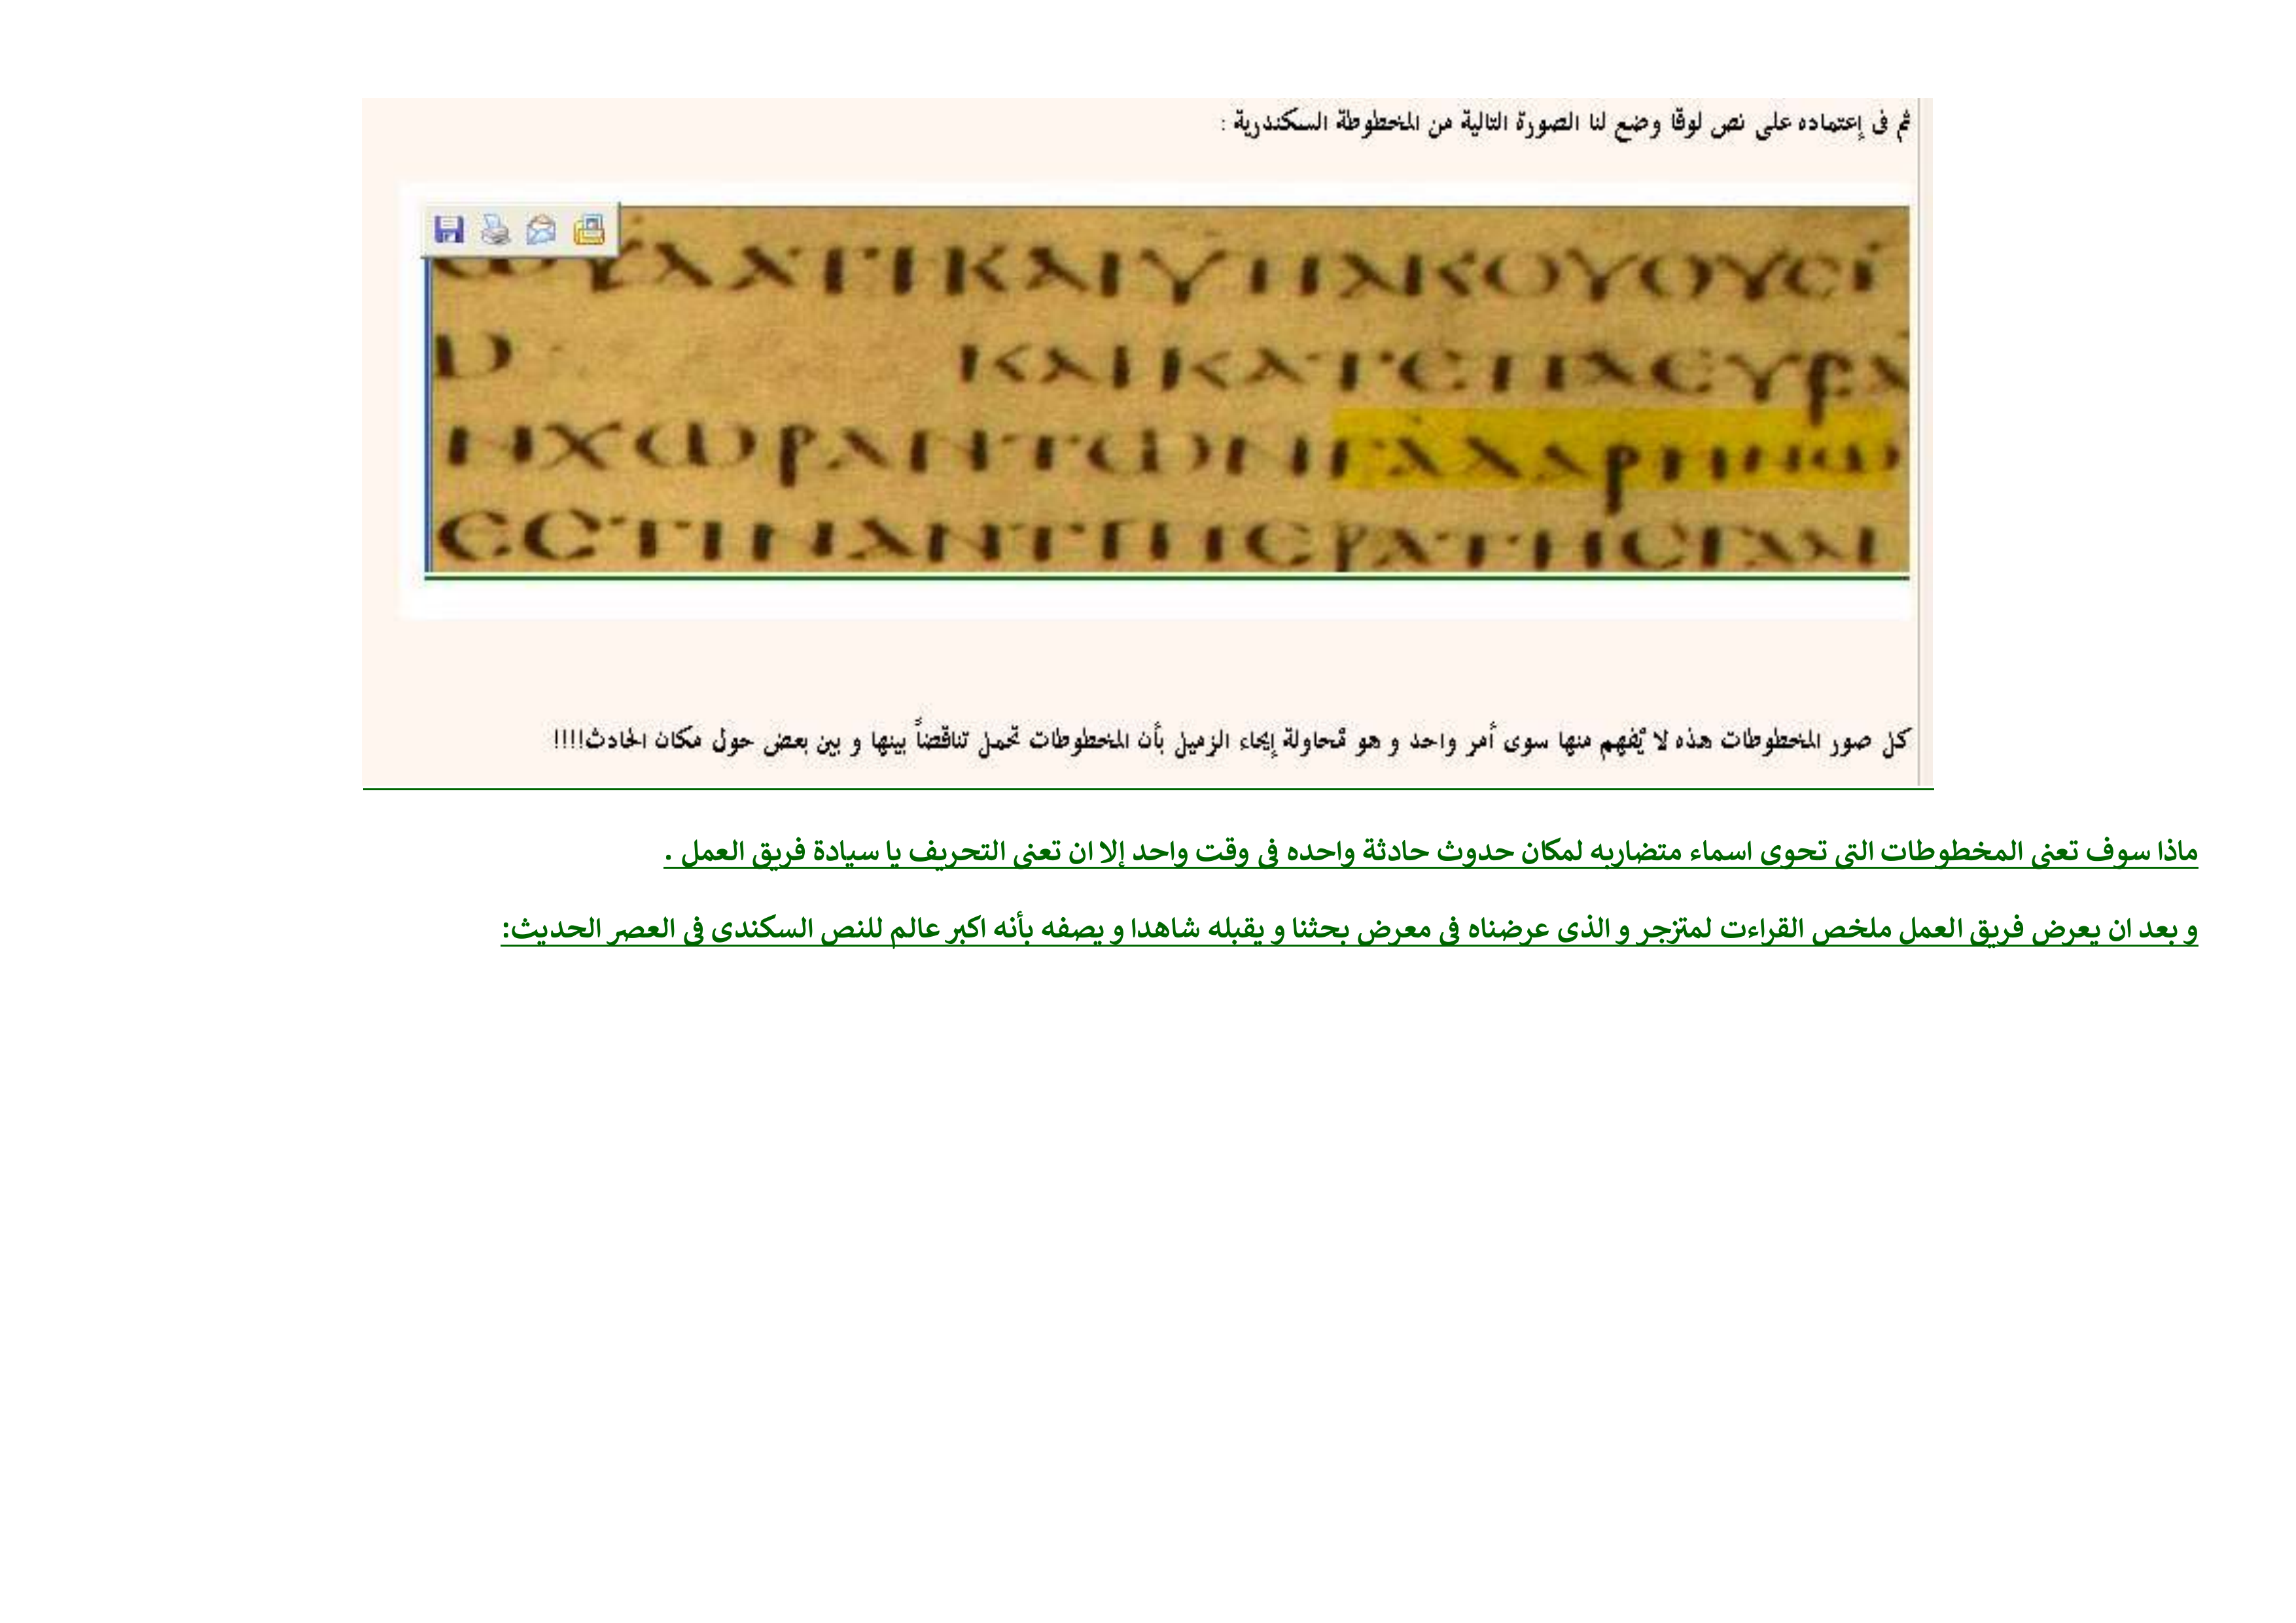 ثم فى إعتماده على نص لوقا وضع لنا الصورة التالية من المخطوطة السكندرية :
ΚΑΙΥΠΑΚΟΥΟΥCΙ
ΚΑΙΚΑΤΕΠΛΕΥCΑ
ΝΧΩΡΑΝΤΩΝΓΑΔΑΡΗΝΩ
ΕCΤΙΝΑΝΤΙΠΕΡΑΤΗCΓΑΛΙ
كل صور المخطوطات هذه لا يُفهم منها سوى أمر واحد و هو مُحاولة إيحاء الزميل بأن المخطوطات تحمل تناقضاً بينها و بين بعض حول مكان الحادث!!!!
ماذا سوف تعنى المخطوطات التى تحوى اسماء متضاربه لمكان حدوث حادثة واحده فى وقت واحد إلا ان تعنى التحريف يا سيادة فريق العمل .
و بعد ان يعرض فريق العمل ملخص القراءت لمتزجر و الذى عرضناه فى معرض بحثنا و يقبله شاهدا و يصفه بأنه اكبر عالم للنص السكندى فى العصر الحديث: